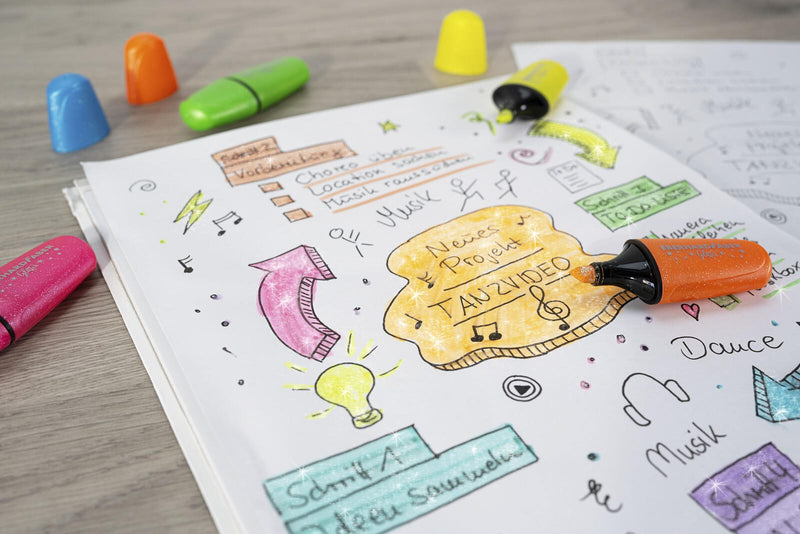 Schritt 2
Vorbereitung
Choreo üben
Location suchen
Musik raussuchen
Musik
Neues
Projekt
TANZVIDEO
Schritt 3
To Do Liste
Kamera
Dance
Musik
Schritt 1
Ideen Sammeln
Schritt 4